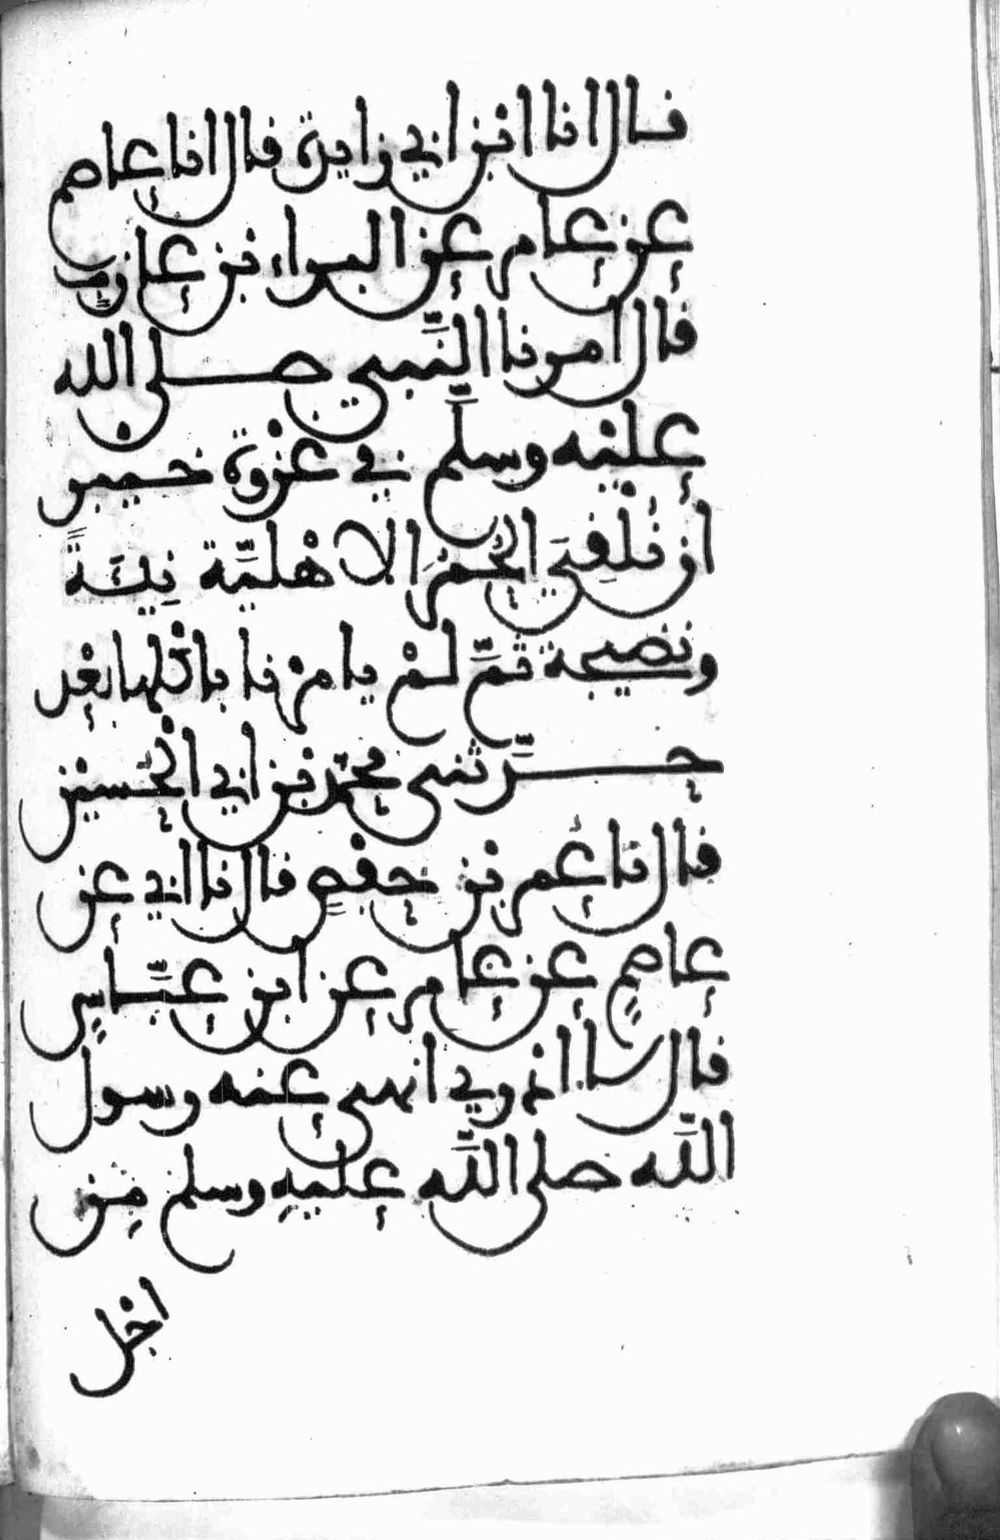 قال انا ابن ابي زايدة قال انا عاصم
عن عامر عن البراء بن عازب
قال امرنا النَّبي صلى الله
عليْه وسلَّم في غزْوة خيبر
انْ نُلْقِيَ الحُمُرَ الاهْليَّة نِيَّةً
ونضيجة ثمَّ لمْ يامرْنا باكْلها بعْد
حدَّثني محمَّد بن ابي الحُسيْن
قال نا عُمر بن حفْصٍ قال نا ابي عن
عاصمٍ عن عامر عن ابن عبَّاسٍ
قال لا ادْري انهى عنه رسول
اللَّه صلى اللَّهِ عليهِ وسلم مِن
اجْل